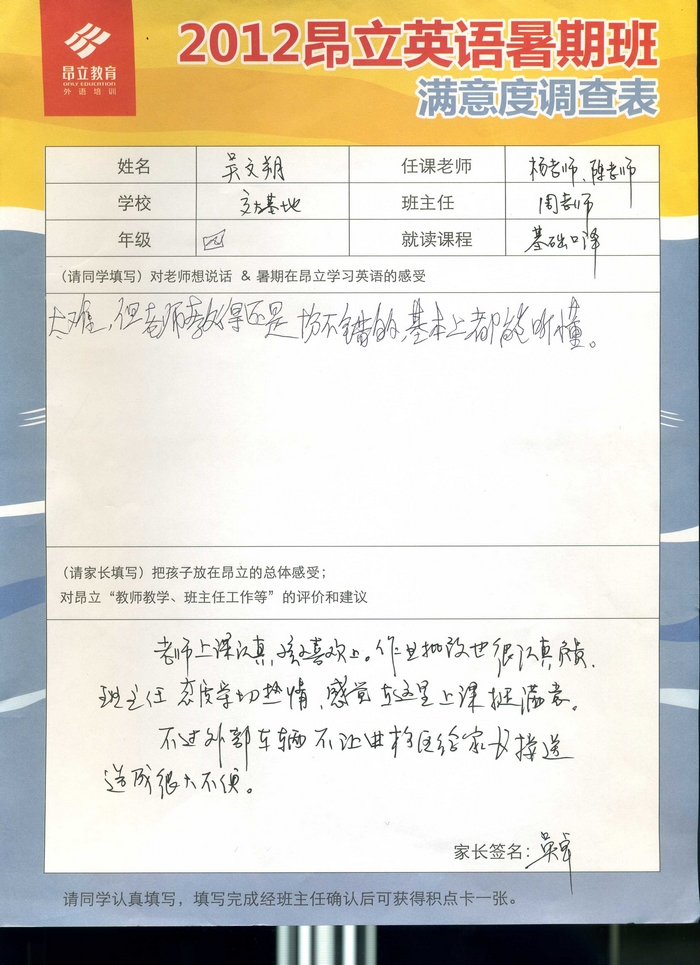 昂立教育
ONLY EDUCATION
外语培训
2012昂立英语暑期班
满意度调查表
姓名 吴文朔 任课老师 杨老师、陈老师
学校 交大基地 班主任 周老师
年级 四 就读课程 基础口译
(请同学填写)对老师想说话 & 暑期在昂立学习英语的感受
太难,但老师教得还是挺不错的,基本上都能听懂。
(请家长填写)把孩子放在昂立的总体感受;
对昂立“教师教学、班主任工作等”的评价和建议
老师上课认真,孩子喜欢上。作业批改也很认真负责.
班主任态度亲切热情,感觉在这里上课挺满意。
不过外部车辆不让进校区给家长接送
造成很大不便。
家长签名:吴
请同学认真填写,填写完成经班主任确认后可获得积点卡一张。